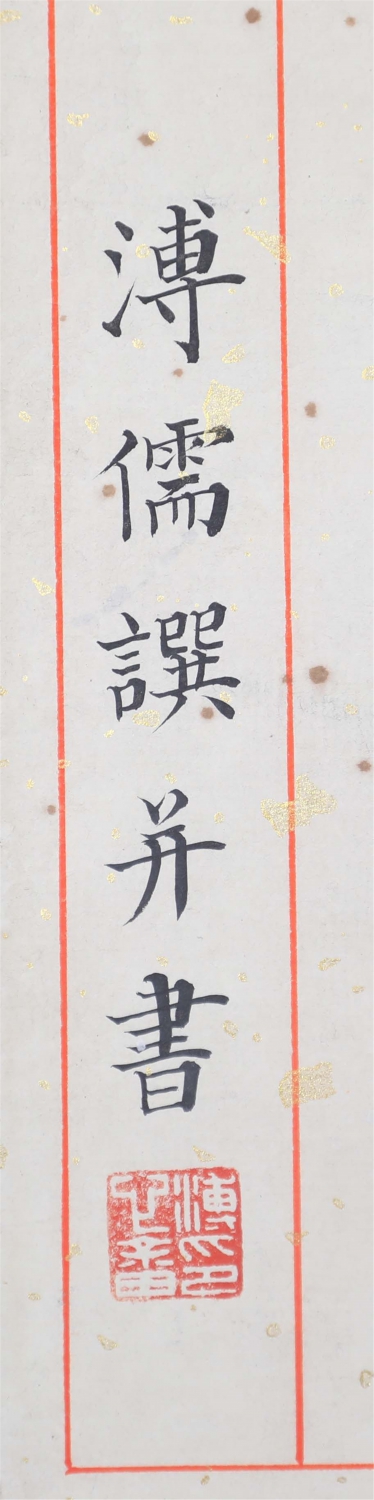 溥儒譔并書